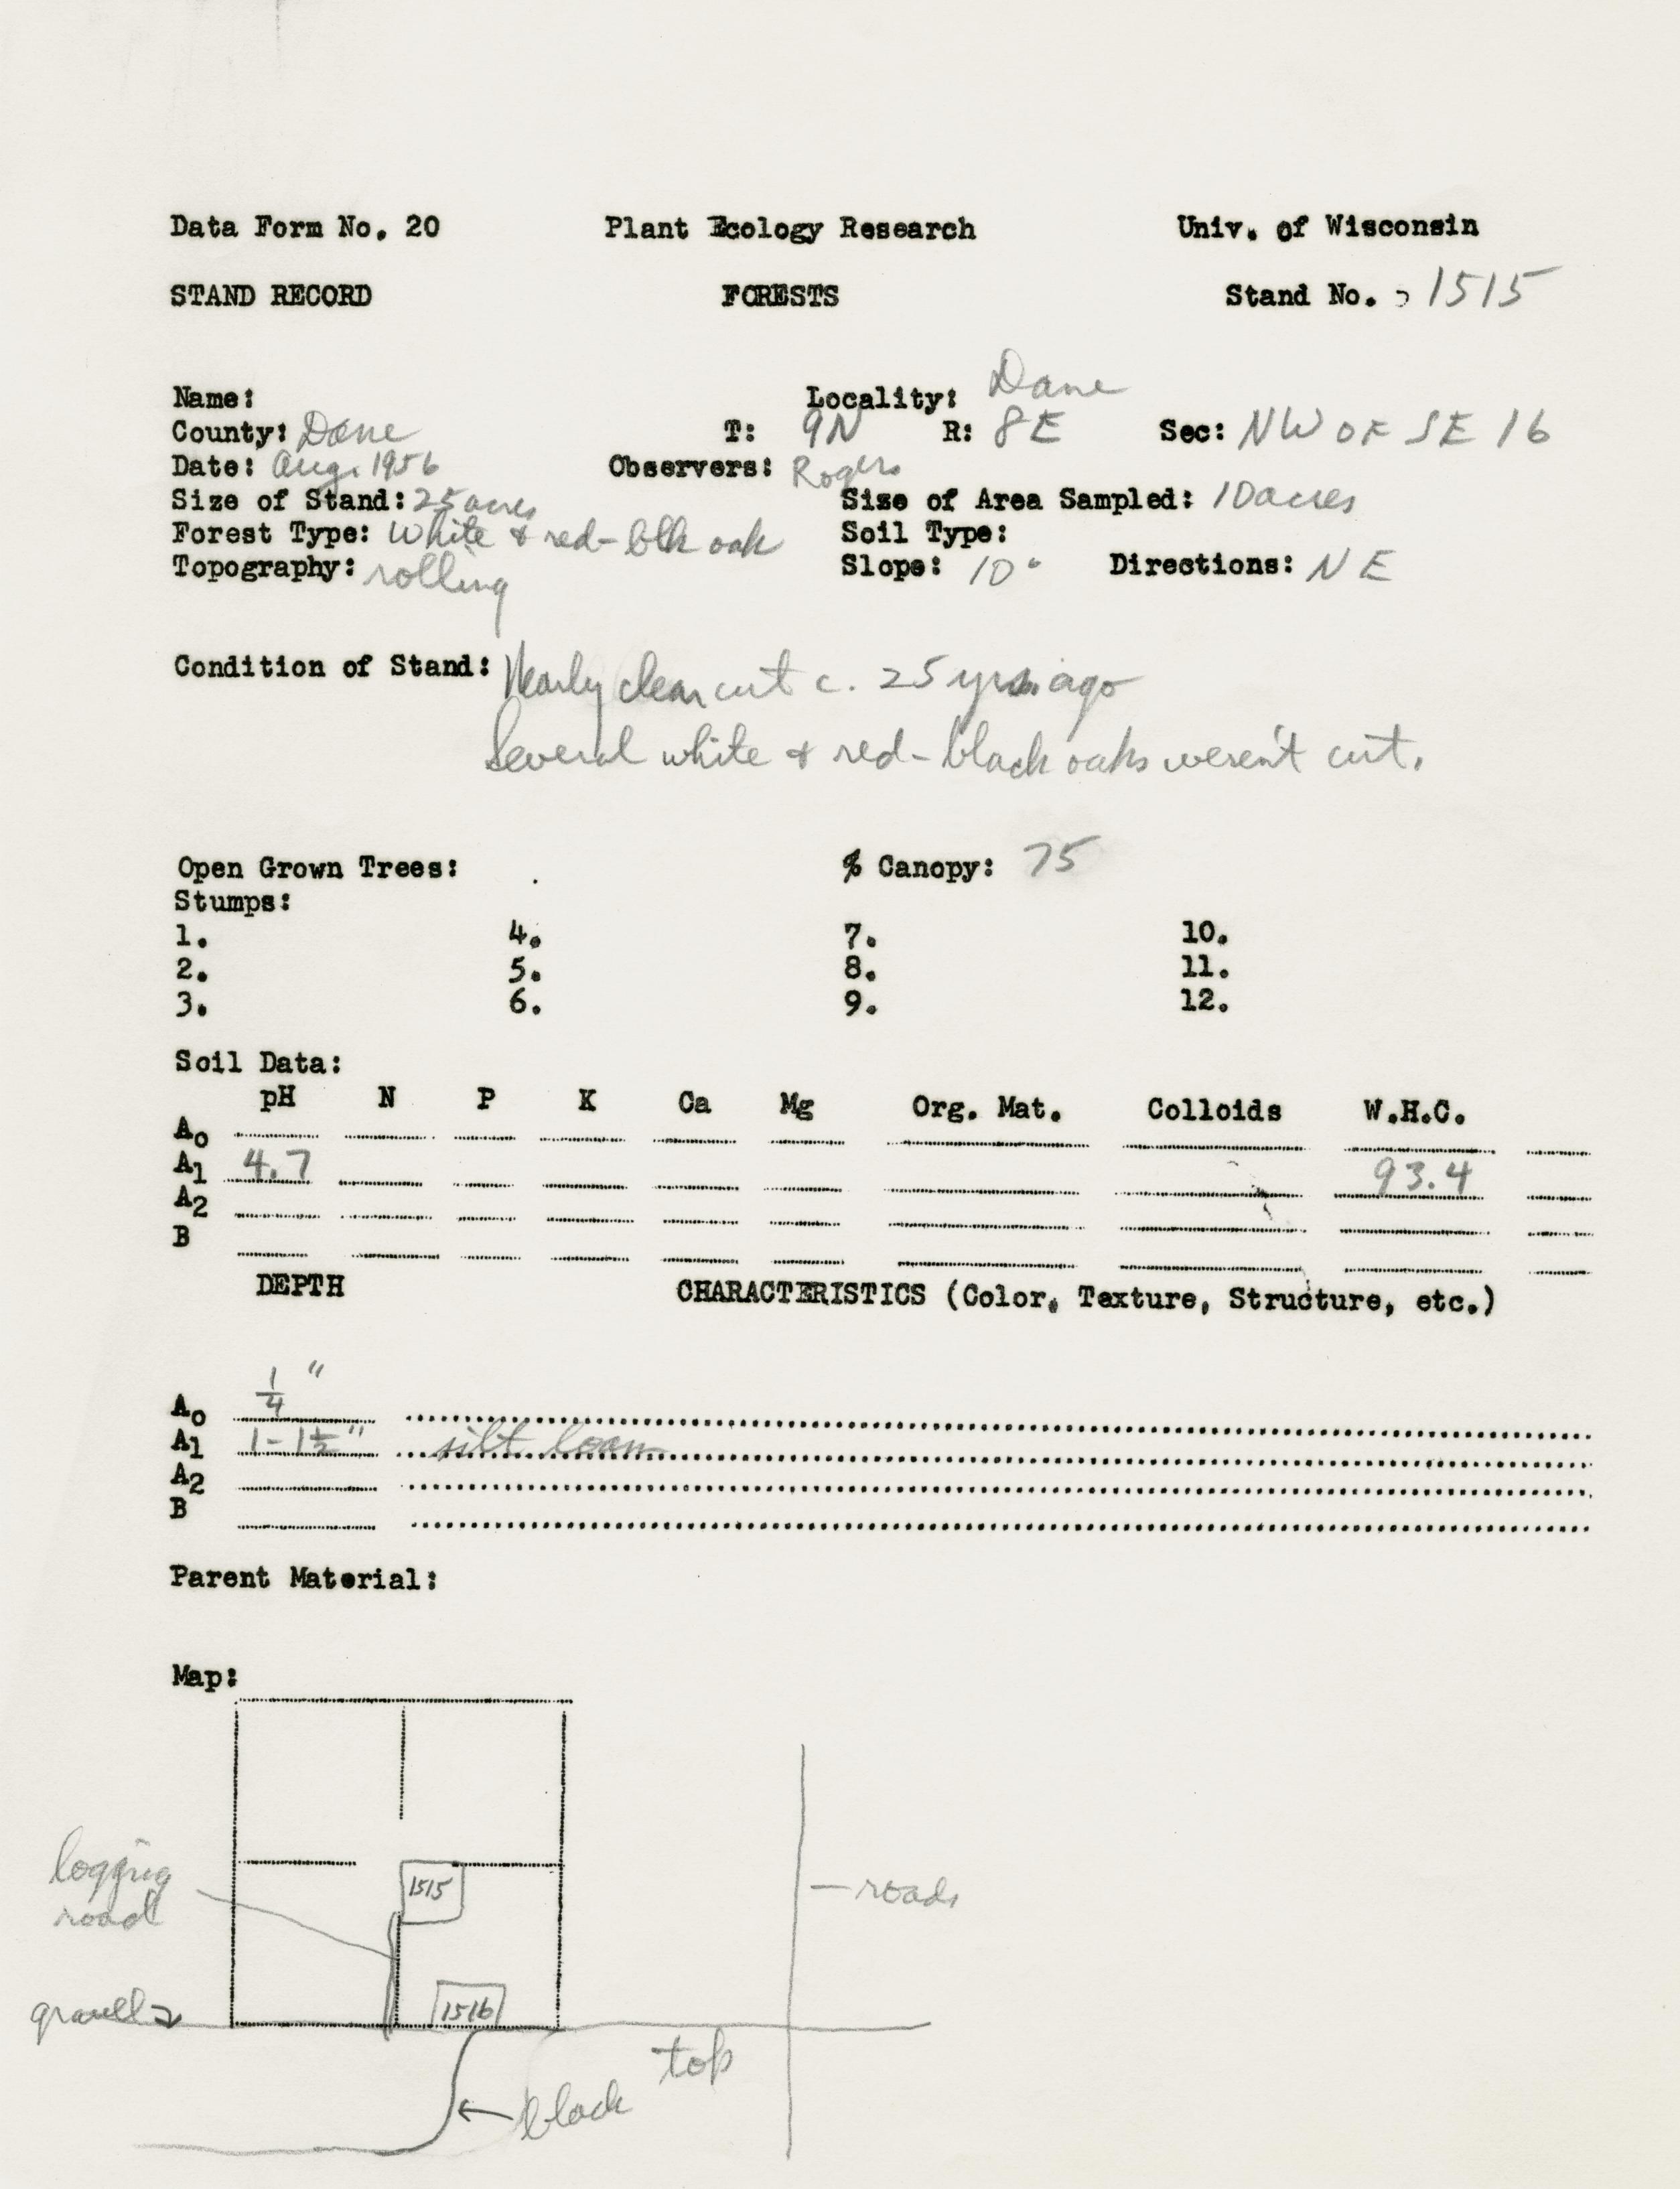 Data Form No. 20 Plant Ecology Research Univ. of Wisconsin
STAND RECORD FORESTS Stand No. 1515
Name: Locality: Dane
County: Dane T: 9N R: 8E Sec: NW OF SE 16
Date: Aug. 1956 Observers: Rogers
Size of Stand: 25 acres Size of Area Sampled: 10 acres
Forest Type: White & red-blk oak Soil Type:
Topography: rolling Slope: 10° Directions: NE
Condition of Stand: Nearly clear cut c. 25 yrs. ago
Several white & red-black oaks weren't cut.
Open Grown Trees: % Canopy: 75
Stumps:
1. 4. 7. 10.
2. 5. 8. 11.
3. 6. 9. 12.
Soil Data:
pH N P K Ca Mg Org. Mat. Colloids W.H.C.
A0
A1 4.7 93.4
A2
B
DEPTH CHARACTERISTICS (Color, Texture, Structure, etc.)
A0 1/4"
A1 1-1½" silt loam
A2
B
Parent Material:
Map:
logging
road
1515
roads
gravel
1516
top
black